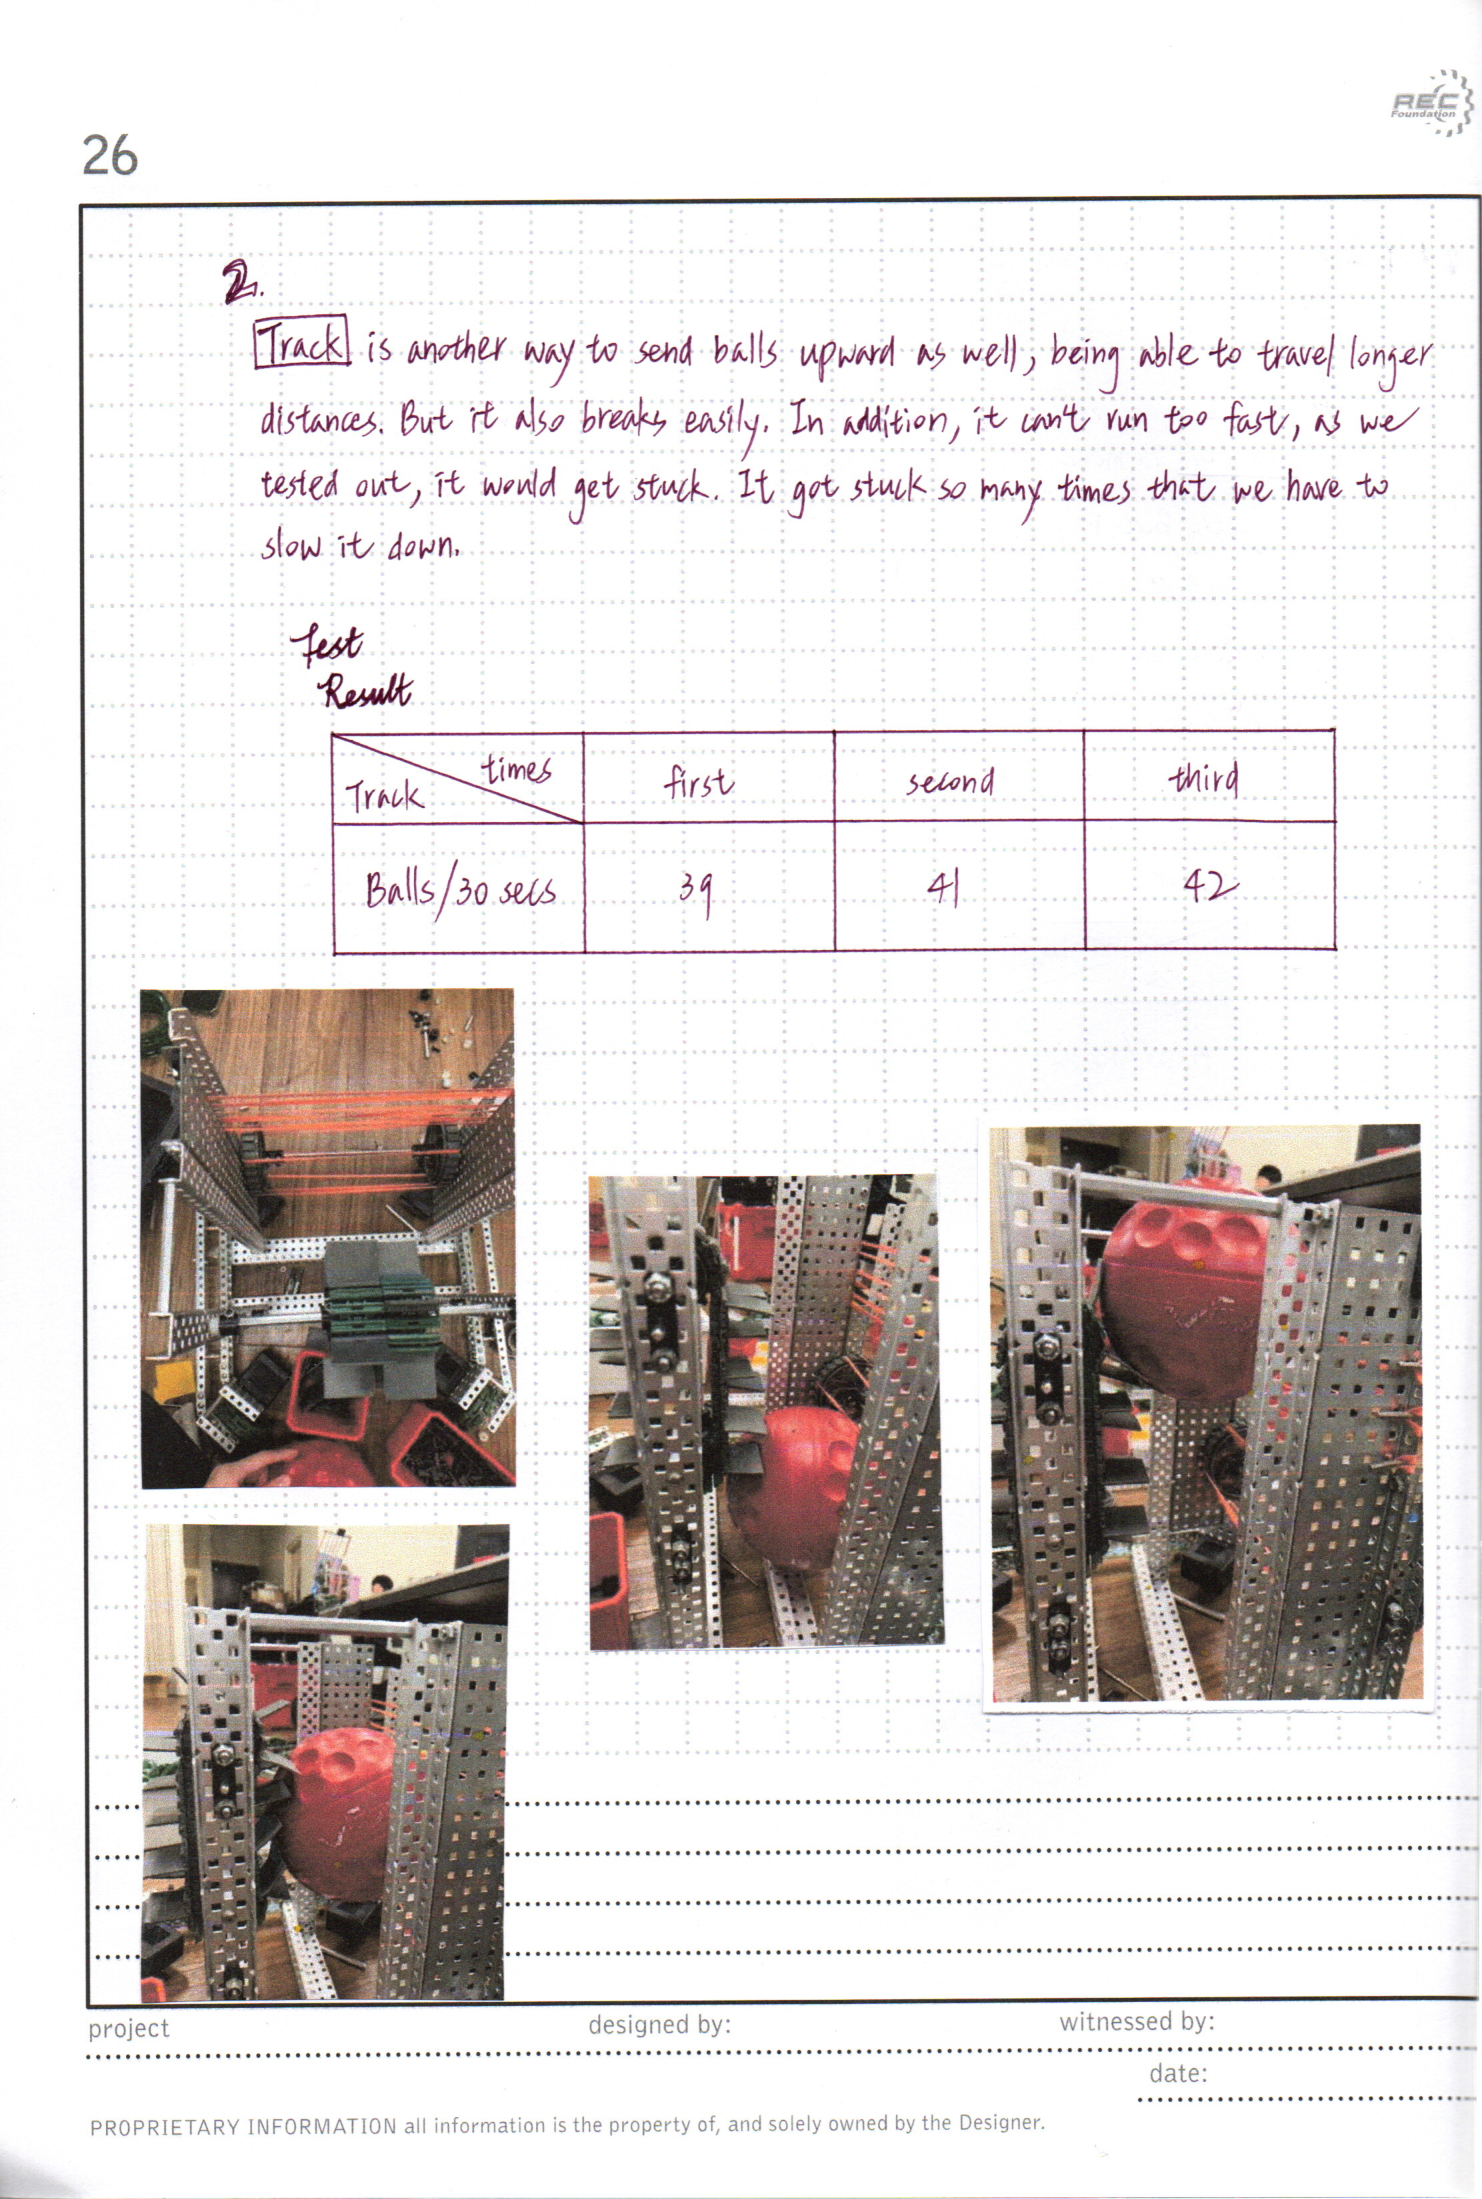 REC
Foundation
26
2.
Track is another way to send balls upward as well, being able to travel longer
distances. But it also breaks easily. In addition, it can't run too fast, as we
tested out, it would get stuck. It got stuck so many times that we have to
slow it down.
Test
Result
times
Track
first
second
third
Balls/30 secs
39
41
42
project
designed by:
witnessed by:
date:
PROPRIETARY INFORMATION all information is the property of, and solely owned by the Designer.